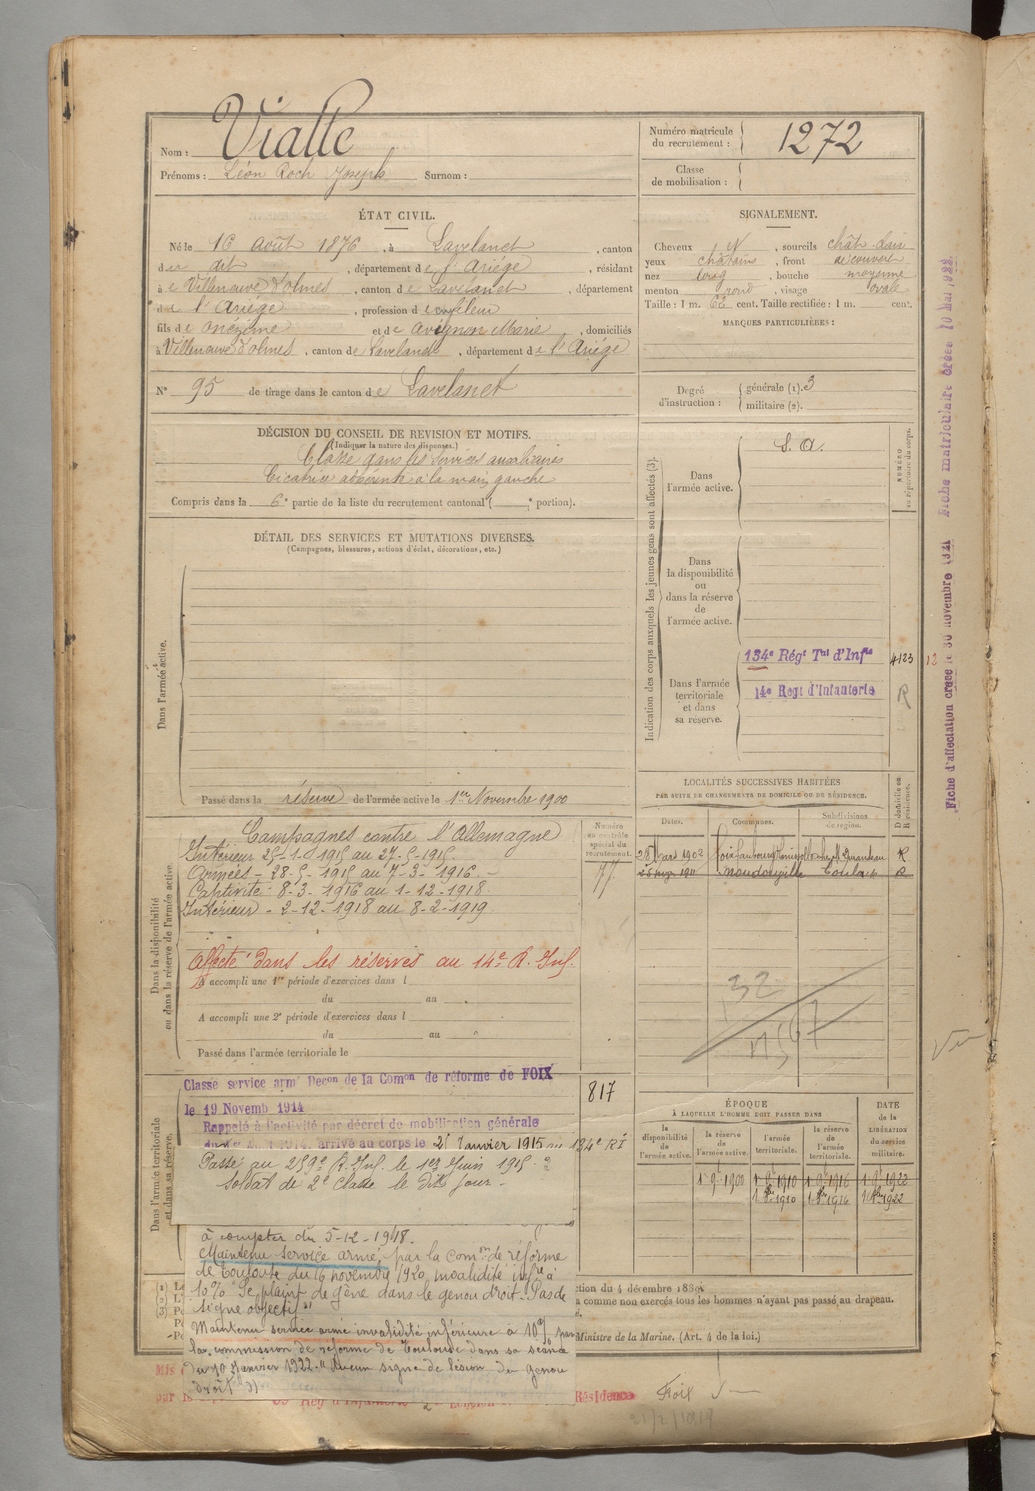 Nom : Vialle
Prénoms : Léon Roch Joseph Surnom :
Numéro matricule du recrutement : 1272
Classe de mobilisation :
ÉTAT CIVIL.
Né le 16 août 1876, à Lavelanet, canton
du dit, département de l'Ariège, résidant
à Villeneuve d'olmes, canton de Lavelanet, département
de l'Ariège, profession de
fils de onézime et de Avignon Marie, domiciliés
à Villeneuve d'olmes, canton de Lavelanet, département de l'Ariège
N° 95 de tirage dans le canton de Lavelanet
SIGNALEMENT.
Cheveux N, sourcils chât. clair
yeux châtains, front découvert
nez long, bouche moyenne
menton rond, visage ovale
Taille : 1 m. 62 cent. Taille rectifiée : 1 m. cent.
MARQUES PARTICULIÈRES :
Degré d'instruction : générale (1). 3
militaire (2).
DÉCISION DU CONSEIL DE REVISION ET MOTIFS.
(Indiquer la nature des dispenses.)
Classé dans les services auxiliaires
Cicatrice adhérente à la main gauche
Compris dans la 6e partie de la liste du recrutement cantonal ( e portion).
DÉTAIL DES SERVICES ET MUTATIONS DIVERSES.
(Campagnes, blessures, actions d'éclat, décorations, etc.)
Dans l'armée active.
Passé dans la réserve de l'armée active le 1er Novembre 1900
Indication des corps auxquels les jeunes gens sont affectés (3).
NUMÉRO au répertoire du corps.
Dans l'armée active.
S. A.
Dans la disponibilité ou dans la réserve de l'armée active.
Dans l'armée territoriale et dans sa réserve.
134e Régt Tal d'Infie 4123 12
14e Regt d'Infanterie R
Fiche d'affectation créée le 30 novembre 1921 Fiche matriculaire créée 10 Mai 1922
Dans la disponibilité ou dans la réserve de l'armée active.
Campagnes contre l'Allemagne
Intérieur 25-1-1915 au 27-5-1915.
Armées - 28-5-1915 au 7-3-1916. -
Captivité - 8-3-1916 au 1-12-1918.
Intérieur - 2-12-1918 au 8-2-1919
Affecté dans les réserves au 14e R. Inf.
A accompli une 1re période d'exercices dans l
du au
A accompli une 2e période d'exercices dans l
du au
Passé dans l'armée territoriale le
Numéro au contrôle spécial du recrutement.
LOCALITÉS SUCCESSIVES HABITÉES
PAR SUITE DE CHANGEMENTS DE DOMICILE OU DE RÉSIDENCE.
Dates. Communes. Subdivisions de région. D domicile ou R résidence.
28 Mars 1902 Foix R
Mondonville Toulouse R
32
Dans l'armée territoriale et dans sa réserve.
Classé service armé Decon de la Comon de réforme de FOIX
le 19 Novemb 1914
Rappelé à l'activité par décret de mobilisation générale
arrivé au corps le 25 Janvier 1915 au 134e RI
817
Passé au 259e R. Inf. le 1er Juin 1915
Soldat de 2e classe le dit jour -
à compter du 5-12-1918.
Maintenu service armé, par la comon de réforme
de Toulouse du 16 novembre 1920, invalidité infre à
10% Se plaint de gêne dans le genou droit. Pas de
signe objectif "
Maintenu service armé invalidité inférieure à 10% par
la commission de réforme de Toulouse dans sa séance
du 10 Janvier 1922. " Aucun signe de lésion du genou
droit ")
ÉPOQUE
À LAQUELLE L'HOMME DOIT PASSER DANS
DATE de la LIBÉRATION du service militaire.
la disponibilité de l'armée active. la réserve de l'armée active. l'armée territoriale. la réserve de l'armée territoriale.
1 9bre 1900 1 9bre 1910 1 9bre 1916 1 9bre 1922
1 8bre 1910 1 8bre 1916 1 8bre 1922
ction du 4 décembre 1889.
à comme non exercés tous les hommes n'ayant pas passé au drapeau.
Ministre de la Marine. (Art. 4 de la loi.)
Résidence Foix
21/2/1919